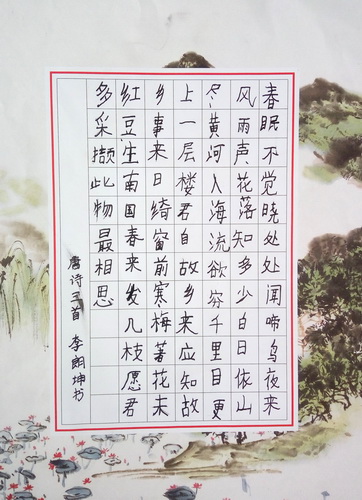 春眠不觉晓处处闻啼鸟夜来
风雨声花落知多少白日依山
尽黄河入海流欲穷千里目更
上一层楼君自故乡来应知故
乡事来日绮窗前寒梅著花未
红豆生南国春来发几枝愿君
多采撷此物最相思
唐诗三首 李朗坤书